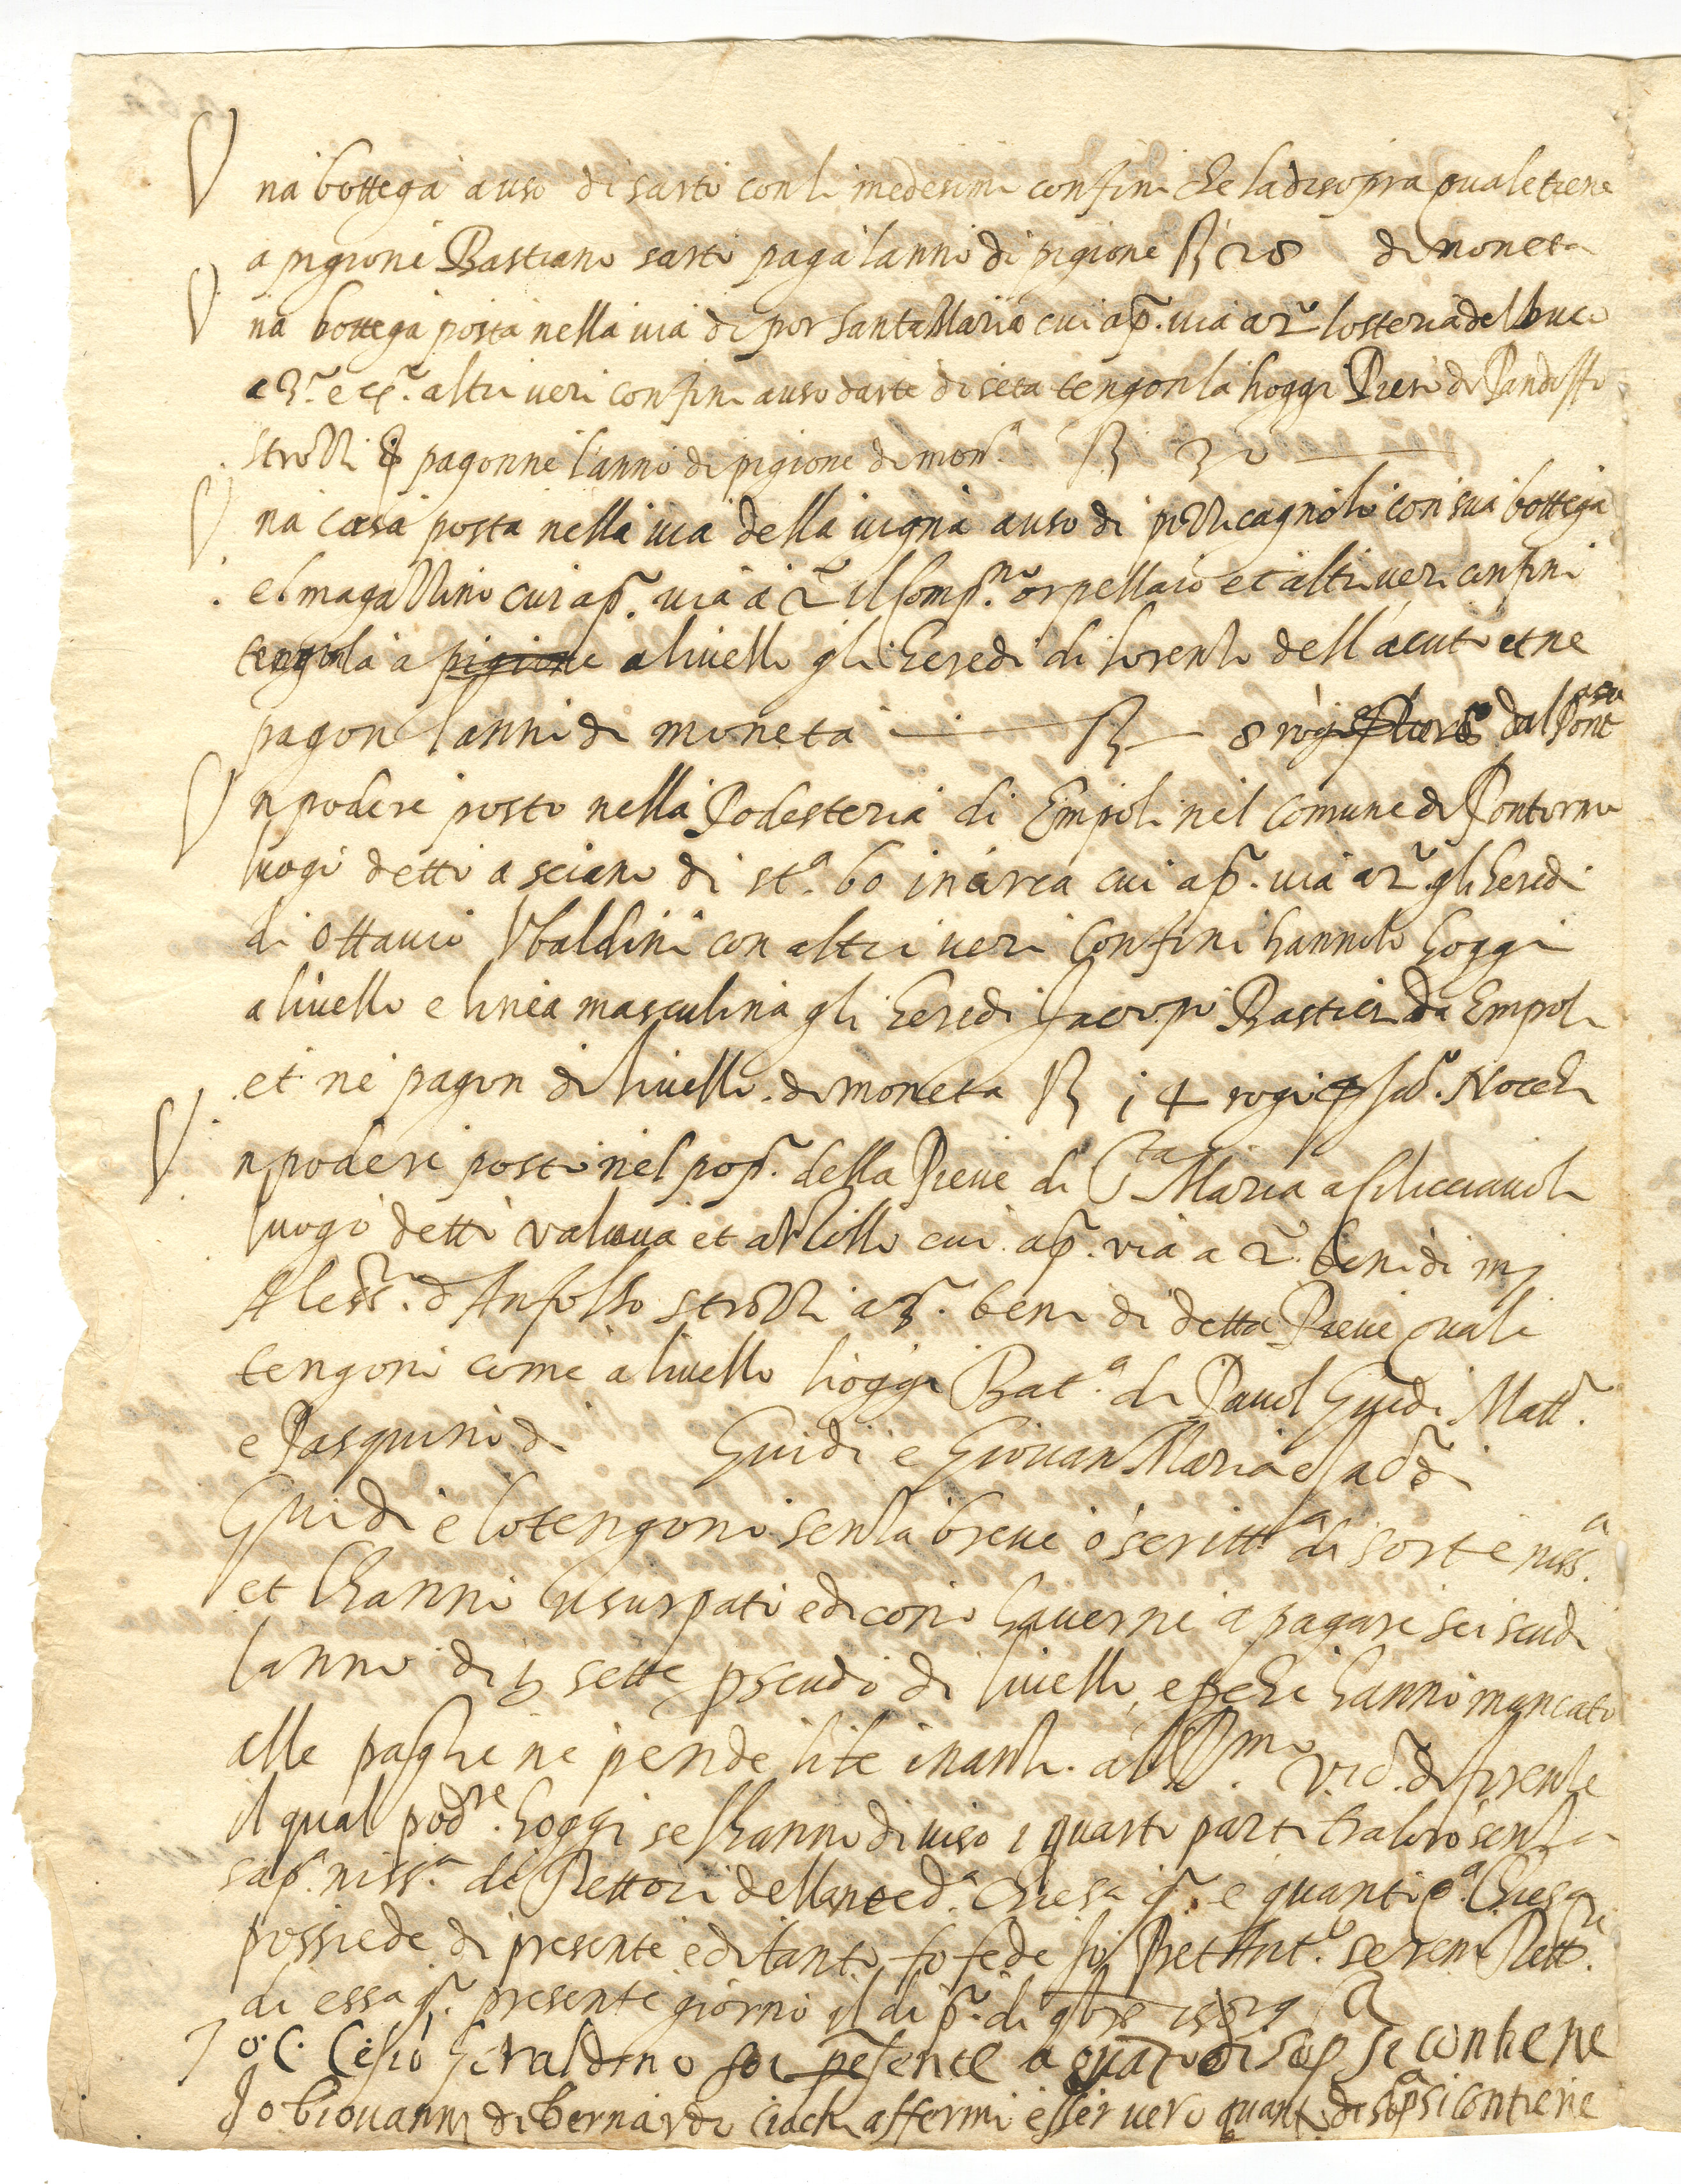 Una bottega a uso di sarto con li medesimi confini che la di sopra quale tiene
a pigione Bastiano sarto paga lanno di pigione 28 di moneta
Una bottega posta nella via di por Santa Maria cui a pº. via a 2º losteria del buco
a 3º. e 4º. altri veri confini a uso darte di seta tengonla hoggi Piero di Pandolfo
strozzi & pagonne lanno di pigione di monª.
Una casa posta nella via della vigna a uso di pizzicagnolo con sua bottega
el magazzino cui a pº. via a 2º il Compº. orpellaio et altri veri confini
tengonla a pigione a livello gli heredi di Lorenzo dell acuto et ne
pagono lanno di moneta 8 rogº dal Ponte
Un podere posto nella Podesteria di Empoli nel comune di Pontormo
luogo detto a sciano di stª. 60 in circa cui a pº. via a 2º. gli heredi
di Ottavio Ubaldini con altri veri confini hannolo hoggi
a livello e linea masculina gli heredi Jacopo da Empoli
et ne pagon di livello di moneta 14 rogº Nocchi
Un podere posto nel popº. della Pieve di Sta Maria a filicciavola
luogo detto et al cui a pº. via a 2º. beni di mj
Alessº. d Anfolso strozzi a 3º. beni di detta Pieve quale
tengono come a livello hoggi Batª. di Pavol Guidi Mattº.
e Pasquino di Guidi e Giovan Maria e
Guidi e lo tengono senza breve o scrittª di sorte nissª.
et lhanno usurpato e dicono haverne a pagare sei scudi
lanno di sette p scudo di livello, e p che hanno mancato
alle paghe ne pende lite inanzi. al Rmo. Vicº. di firenze
il qual podre. hoggi se lhanno diviso i quarto parti tra loro senza
sapª. nissª. de Rettori della anted.ª Chiesa qº. e quanto dª. Chiesa
possiede di presente e di tanto fo fede Io Pret Antº. sereni Rettre.
di essa qº. presente giorno il di pº. di 9bre
Io C. Celio Giraldino fui presente a quato di sop si contiene
Io Giovannj di bernardo affermo esser vero quanto di sopª si contiene